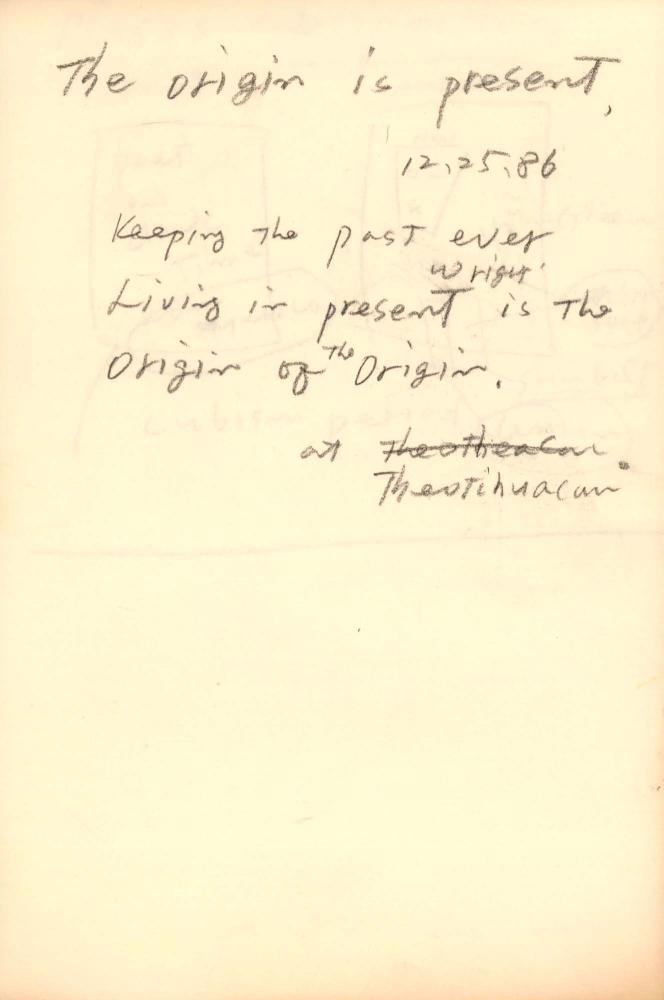 The origin is present,
12,25,86
Keeping the past ever
wright
Living in present is the
Origin of the Origin.
at Theotheacan.
Theotihuacan